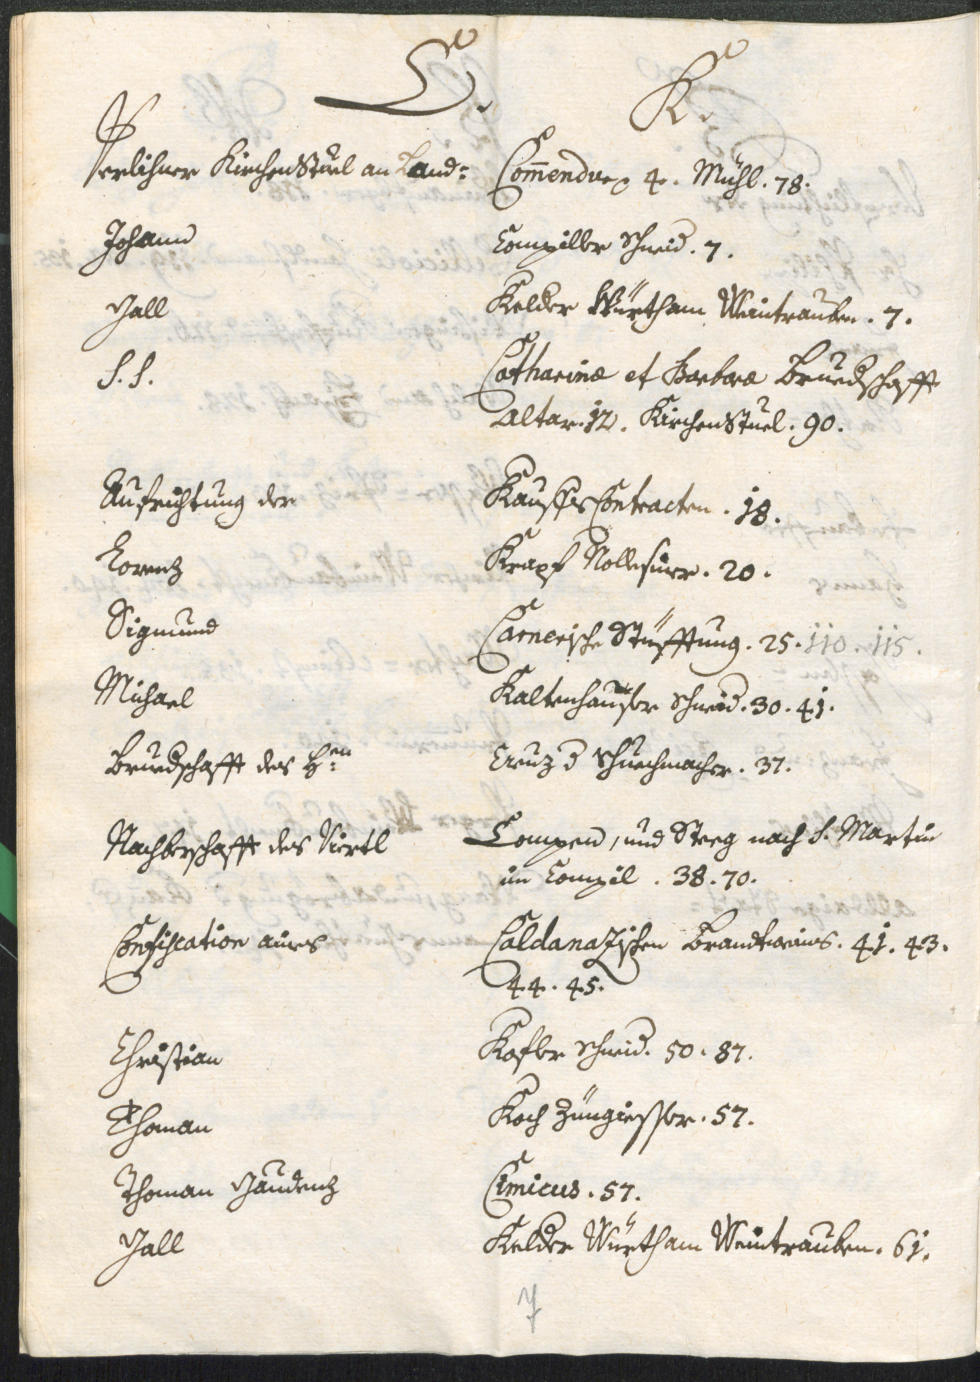 C. K.
Verlihner KirchenStuel an Land= Com̄endur 4. Mühl. 78.
Johann Compiller Schneid. 7.
Gall Kelder Würth am Weintrauben. 7.
S. S. Catharinæ et Barbaræ Bruedschafft
Altar. 12. KirchenStuel. 90.
Aufrichtung der KauffsContracten. 18.
Lorentz Krapf 20.
Sigmund Carnerische Stüfftung. 25. 110. 115.
Michael Kaltenhauser Schneid. 30. 41.
Bruedschafft des H:en Creuz d Schuechmacher. 37.
Nachberschafft des Viertl Compen, und Steeg nach S. Martin
im Compil. 38. 70.
Confiscation aines Caldanazischen Brandtweins. 41. 43.
44. 45.
Christian Kofler Schneid. 50. 87.
Thoman Koch Züngiesser. 57.
Thoman Gaudentz Cimicus. 57.
Gall Kelder Würth am Weintrauben. 61.
7